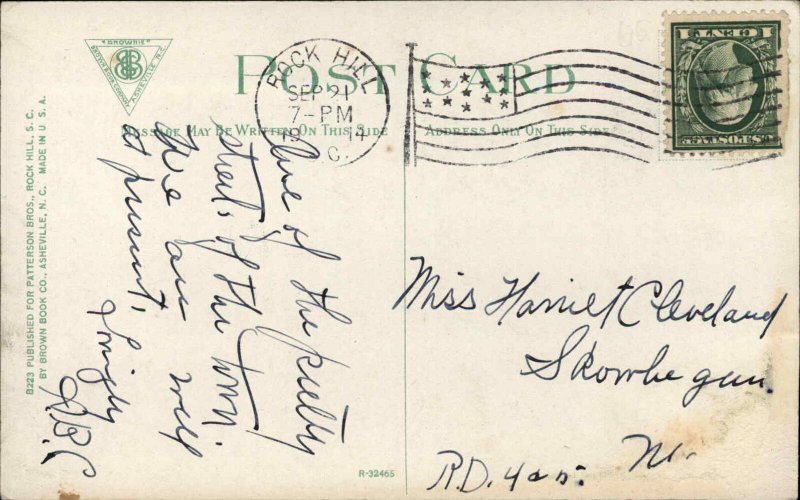 "BROWNIE"
BROWN BOOK COMPANY
ASHEVILLE, N.C.
POST CARD
MESSAGE MAY BE WRITTEN ON THIS SIDE
ADDRESS ONLY ON THIS SIDE
ROCK HILL
SEP 21
7-PM
14
S.C.
One of the pretty
streets of the town.
We are well
at present.
J.B.C
Miss Harriet Cleveland
Skowhegan
R.D. 4 or 5. Me.
8223 PUBLISHED FOR PATTERSON BROS., ROCK HILL, S. C.
BY BROWN BOOK CO., ASHEVILLE, N. C. MADE IN U. S. A.
R-32465
U.S. POSTAGE
1 CENT 1